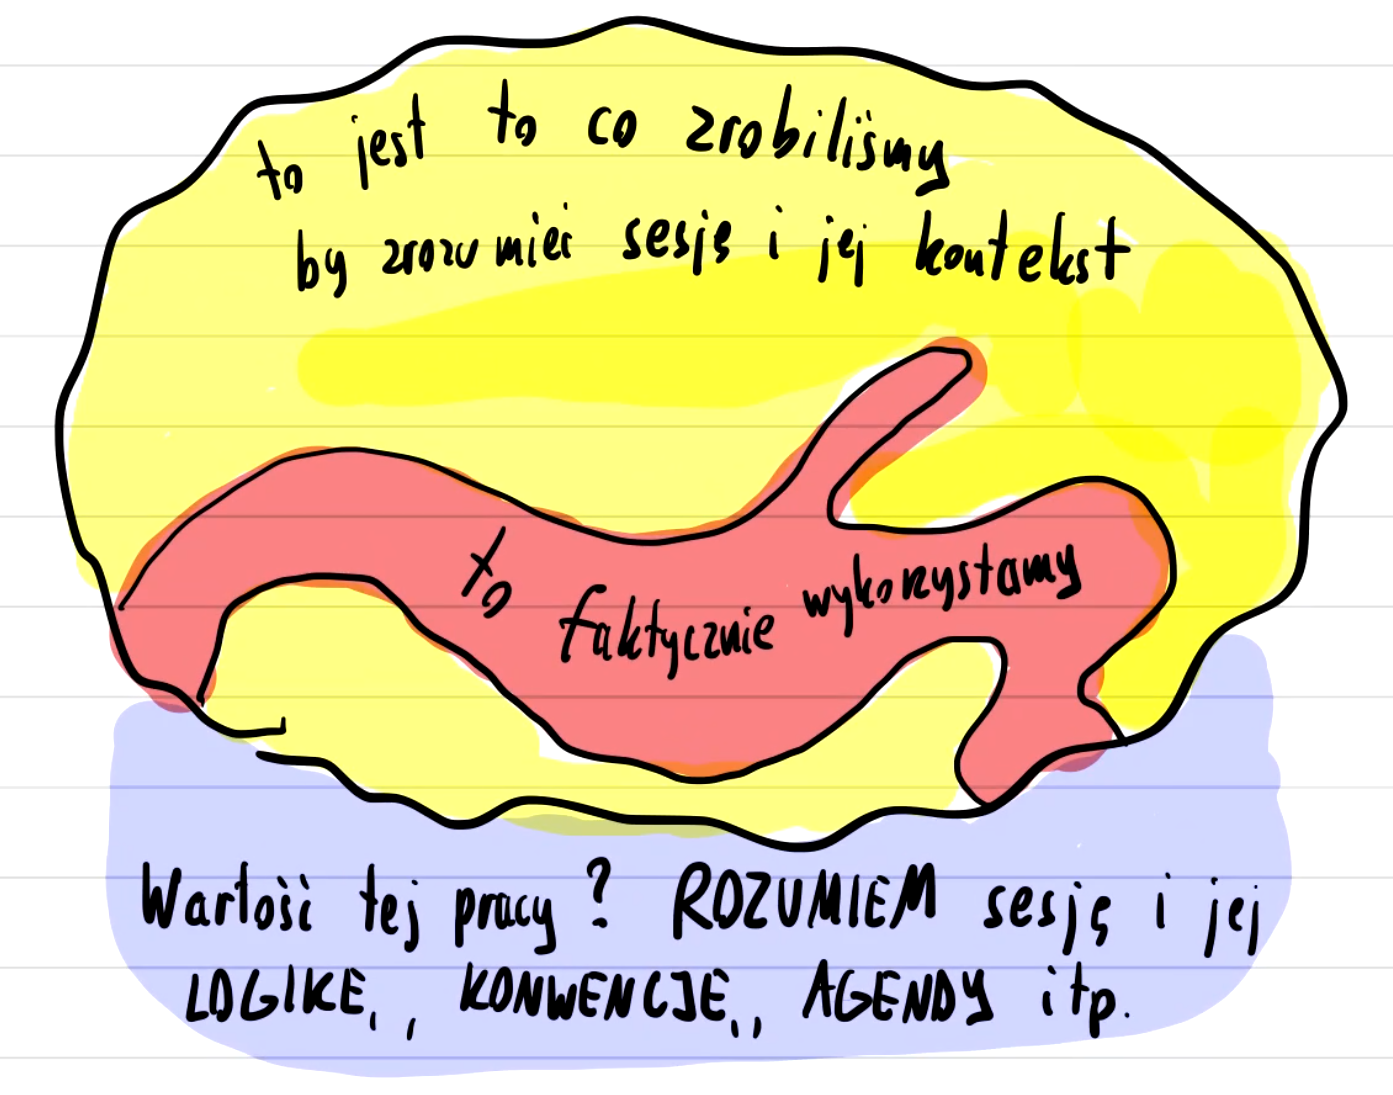 to jest to co zrobiliśmy
by zrozumieć sesję i jej kontekst
to faktycznie wykorzystamy
Wartość tej pracy? ROZUMIEM sesję i jej
LOGIKĘ, KONWENCJĘ, AGENDY itp.